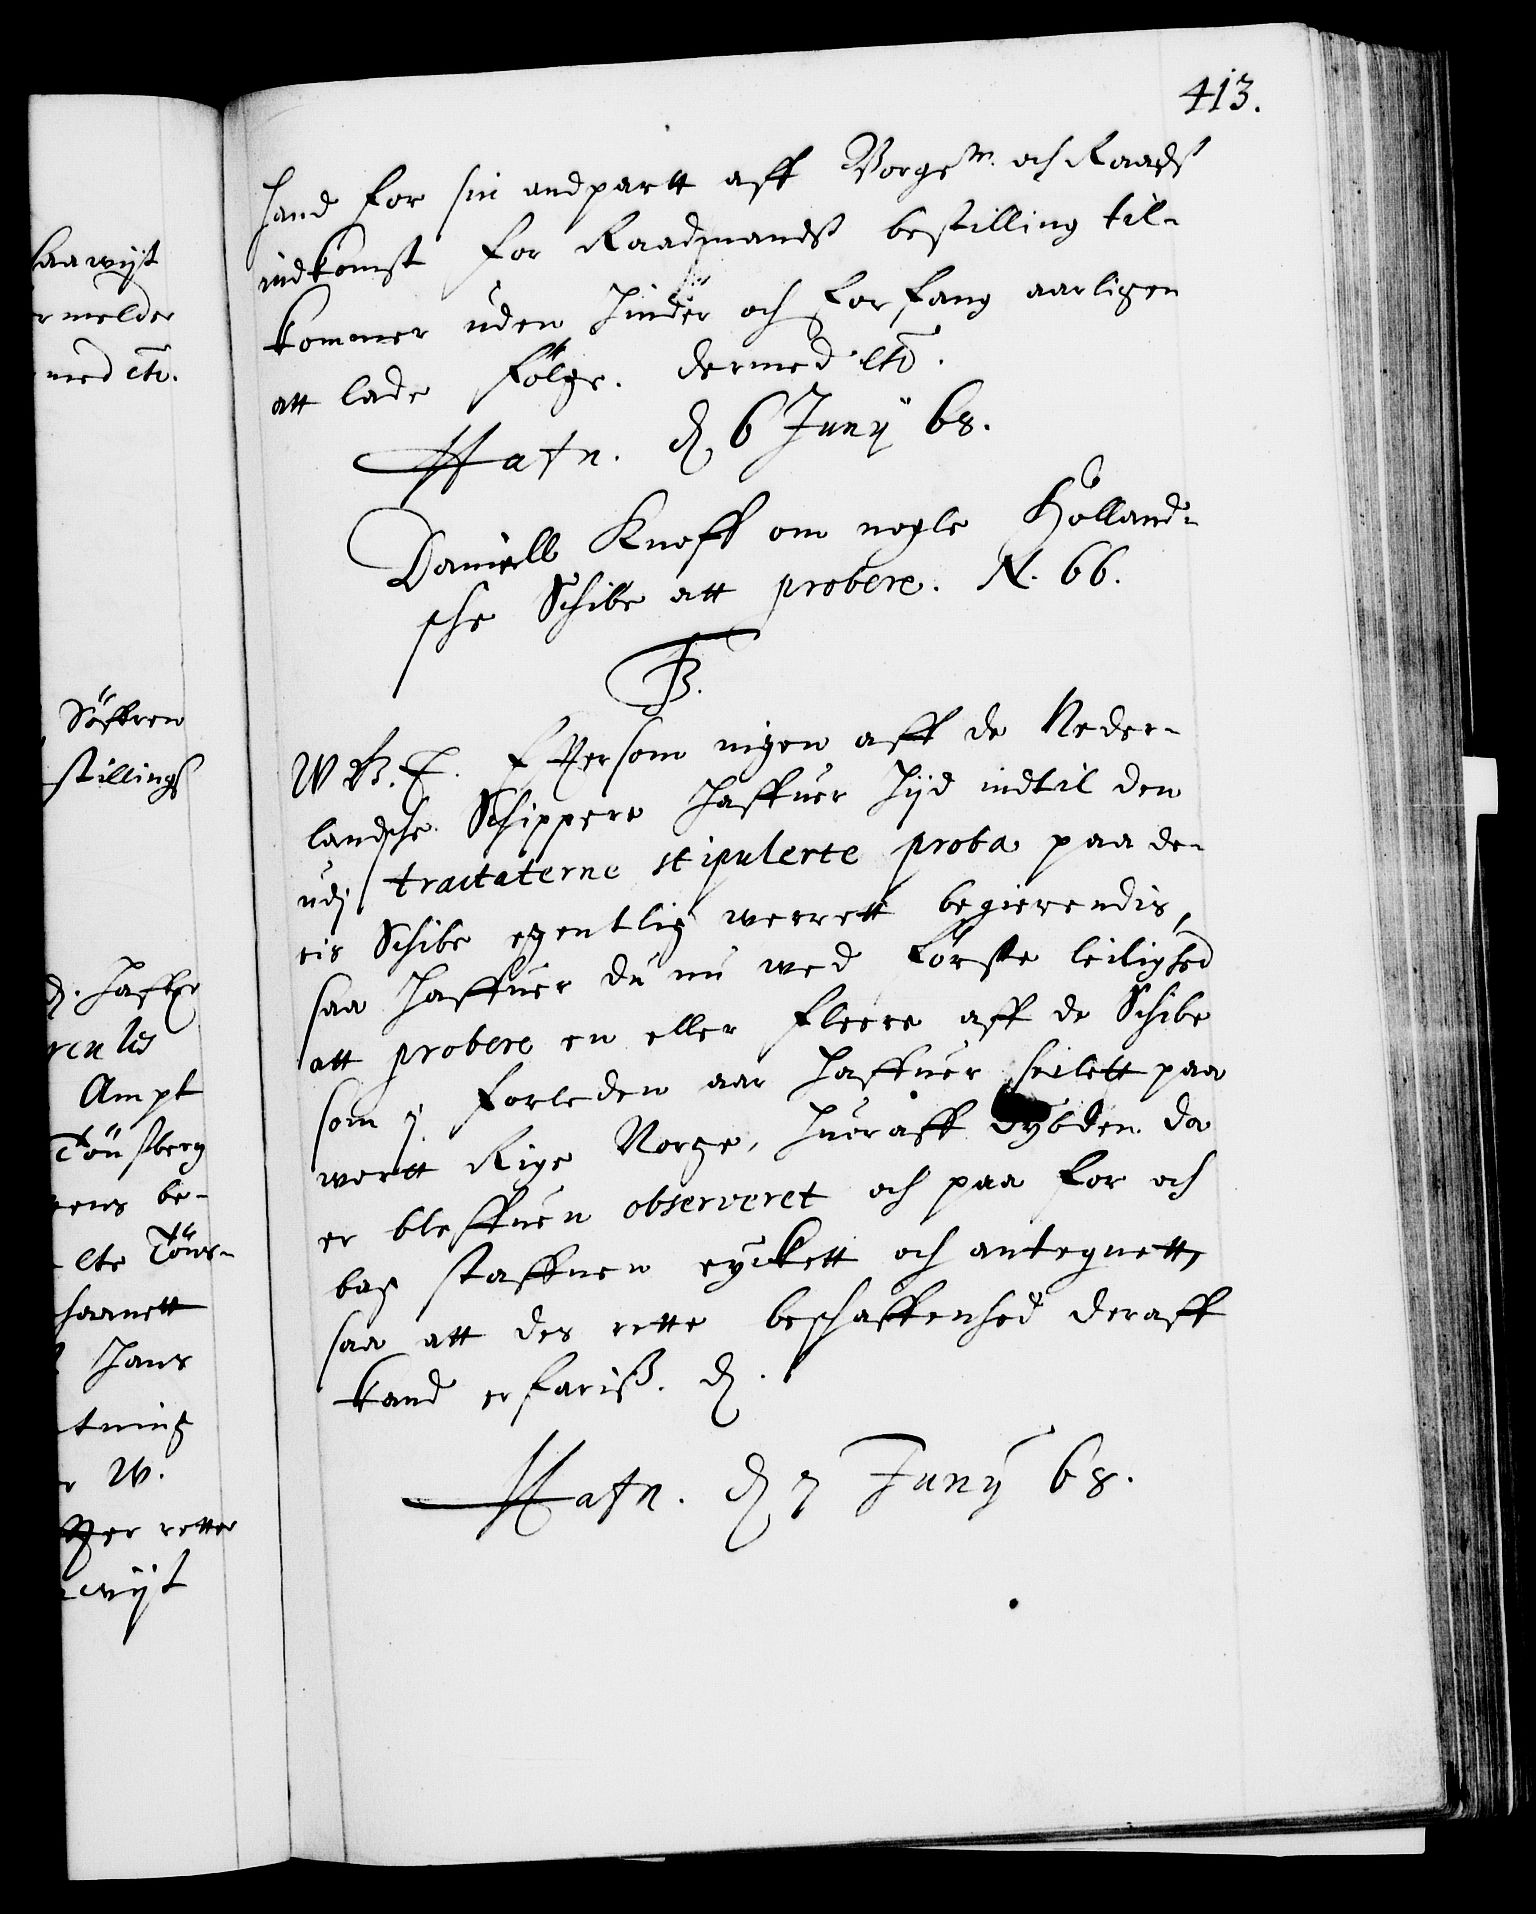 413.
hand for sin andpartt aff Borgem. och Raads
indkomst for Raadmands bestilling til-
kommer uden Hinder och forfang aarligen
att lade følge. dermed etc.
Hafn. d. 6 Junÿ 68.
Daniell Knoff om nogle Holland-
sche Schibe att probere. N. 66.
F3.
W B. T. Effterson ingen aff de Neder-
landsche Schippere haffuer hid indtil den
udj tractaterne stipulerte proba paa de-
ris Schibe egentlig werrett begierendis,
saa haffuer du nu wed første leilighed
att probere en eller fleere aff de Schibe
som j forleden aar haffuer seilett paa
wortt Rige Norge, huoraff dybden da
er bleffuen observeret och paa for och
bag staffnen eyckett och antegnett,
saa att des rette beschaffenhed deraff
kand erfariß. d.
Hafn. d. 7 Junÿ 68.
saa wijt
rmelder
med etc.
Söffren
stilling
haffr
rentes
Ampt
Tønsberg
rens be-
lte Töns-
haanett
Hans
tning
W.
ffter rette
wijt